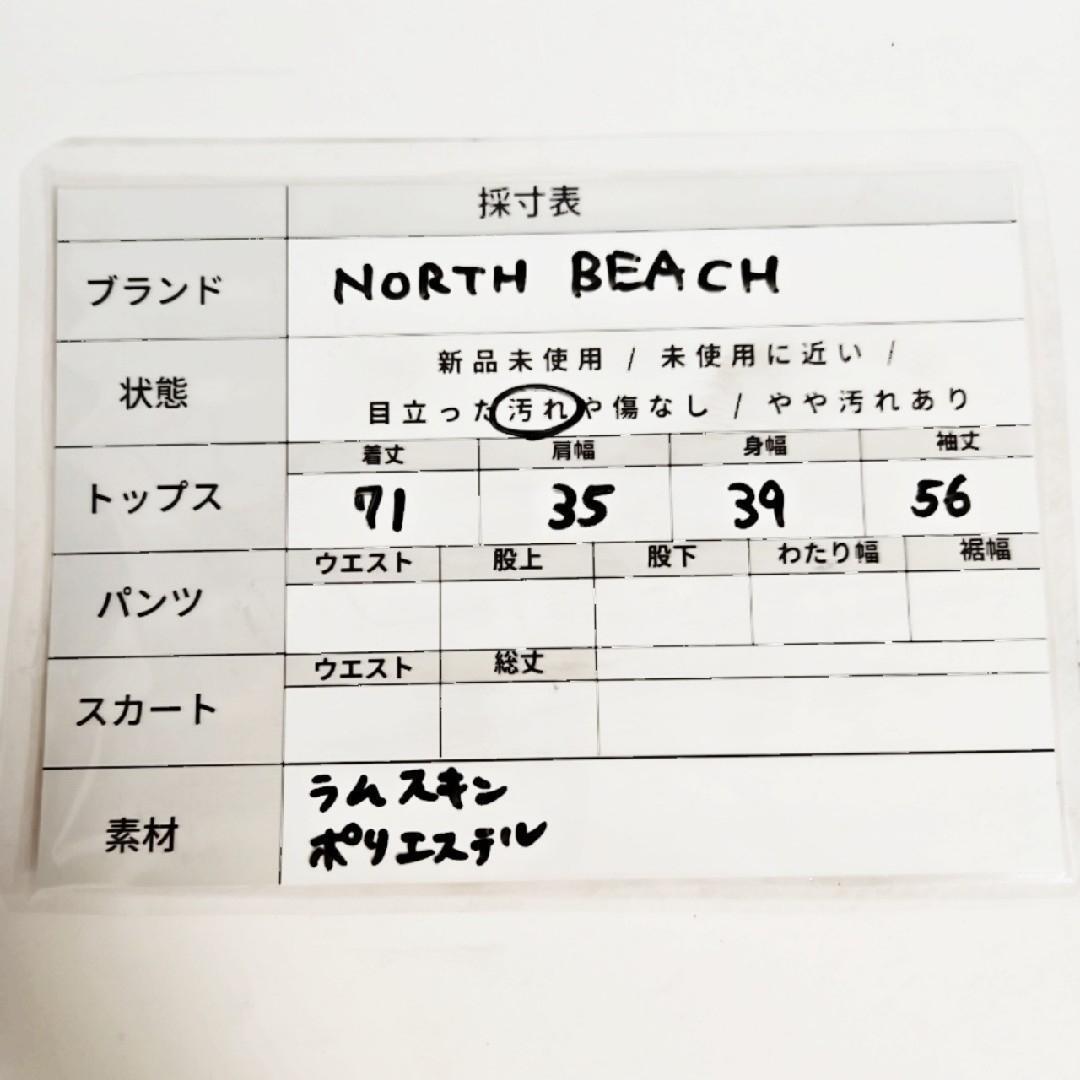 採寸表
ブランド NORTH BEACH
状態 新品未使用 / 未使用に近い /
目立った汚れや傷なし / やや汚れあり
着丈 肩幅 身幅 袖丈
トップス 71 35 39 56
ウエスト 股上 股下 わたり幅 裾幅
パンツ
ウエスト 総丈
スカート
素材 ラムスキン
ポリエステル